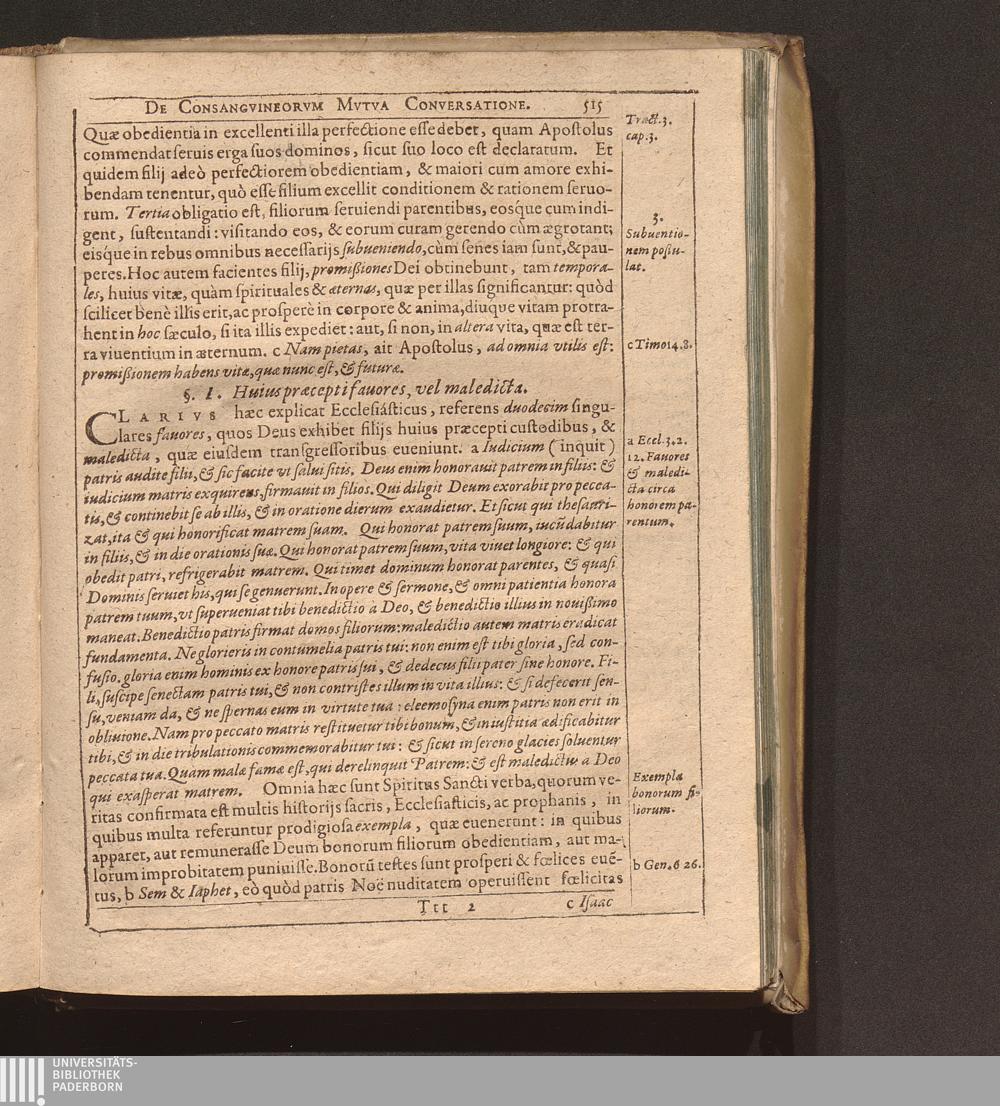 DE CONSANGVINEORVM MVTVA CONVERSATIONE. 515
Quæ obedientia in excellenti illa perfectione esse debet, quam Apostolus
commendat seruis erga suos dominos, sicut suo loco est declaratum. Et
quidem filij adeò perfectiorem obedientiam, & maiori cum amore exhi-
bendam tenentur, quò esse filium excellit conditionem & rationem seruo-
rum. Tertia obligatio est, filiorum seruiendi parentibus, eosque cum indi-
gent, sustentandi: visitando eos, & eorum curam gerendo cùm ægrotant;
eisque in rebus omnibus necessarijs subueniendo, cùm senes iam sunt, & pau-
peres. Hoc autem facientes filij, promißiones Dei obtinebunt, tam tempora-
les, huius vitæ, quàm spirituales & æternas, quæ per illas significantur: quòd
scilicet benè illis erit, ac prosperè in corpore & anima, diuque vitam protra-
hent in hoc sæculo, si ita illis expediet: aut, si non, in altera vita, quæ est ter-
ra viuentium in æternum. c Nam pietas, ait Apostolus, ad omnia vtilis est:
promißionem habens vitæ, quæ nunc est, & futuræ.
Tract. 3.
cap. 3.
3.
Subuentio-
nem postu-
lat.
c Timo 14. 8.
§. 1. Huius præcepti fauores, vel maledicta.
CLARIVS hæc explicat Ecclesiásticus, referens duodecim singu-
lares fauores, quos Deus exhibet filijs huius præcepti custodibus, &
maledicta, quæ eiusdem transgressoribus eueniunt. a Iudicium (inquit)
patris audite filii, & sic facite vt salui sitis. Deus enim honorauit patrem in filiis: &
iudicium matris exquirens, firmauit in filios. Qui diligit Deum exorabit pro pecca-
tis, & continebit se ab illis, & in oratione dierum exaudietur. Et sicut qui thesauri-
zat, ita & qui honorificat matrem suam. Qui honorat patrem suum, iucũdabitur
in filiis, & in die orationis suæ. Qui honorat patrem suum, vita viuet longiore: & qui
obedit patri, refrigerabit matrem. Qui timet dominum honorat parentes, & quasi
Dominis seruiet his, qui se genuerunt. In opere & sermone, & omni patientia honora
patrem tuum, vt superueniat tibi benedictio a Deo, & benedictio illius in nouißimo
maneat. Benedictio patris firmat domos filiorum: maledictio autem matris eradicat
fundamenta. Ne glorieris in contumelia patris tui: non enim est tibi gloria, sed con-
fusio. gloria enim hominis ex honore patris sui, & dedecus filii pater sine honore. Fi-
li, suscipe senectam patris tui, & non contristes illum in vita illius: & si defecerit sen-
su, veniam da, & ne spernas eum in virtute tua: eleemosyna enim patris non erit in
obliuione. Nam pro peccato matris restituetur tibi bonum, & in iustitia ædificabitur
tibi, & in die tribulationis commemorabitur tui: & sicut in sereno glacies soluentur
peccata tua. Quam malæ famæ est, qui derelinquit Patrem: & est maledictus a Deo
qui exasperat matrem. Omnia hæc sunt Spiritus Sancti verba, quorum ve-
ritas confirmata est multis historijs sacris, Ecclesiasticis, ac prophanis, in
quibus multa referuntur prodigiosa exempla, quæ euenerunt: in quibus
apparet, aut remunerasse Deum bonorum filiorum obedientiam, aut ma-
lorum improbitatem puniuisse. Bonorũ testes sunt prosperi & fœlices euē-
tus, b Sem & Iaphet, eò quòd patris Noë nuditatem operuissent fœlicitas
a Eccl. 3. 2.
12. Fauores
& maledi-
cta circa
honorem pa-
rentum.
Exempla
bonorum fi-
liorum.
b Gen. 6 26.
Ttt 2 c Isaac
UNIVERSITÄTS-
BIBLIOTHEK
PADERBORN